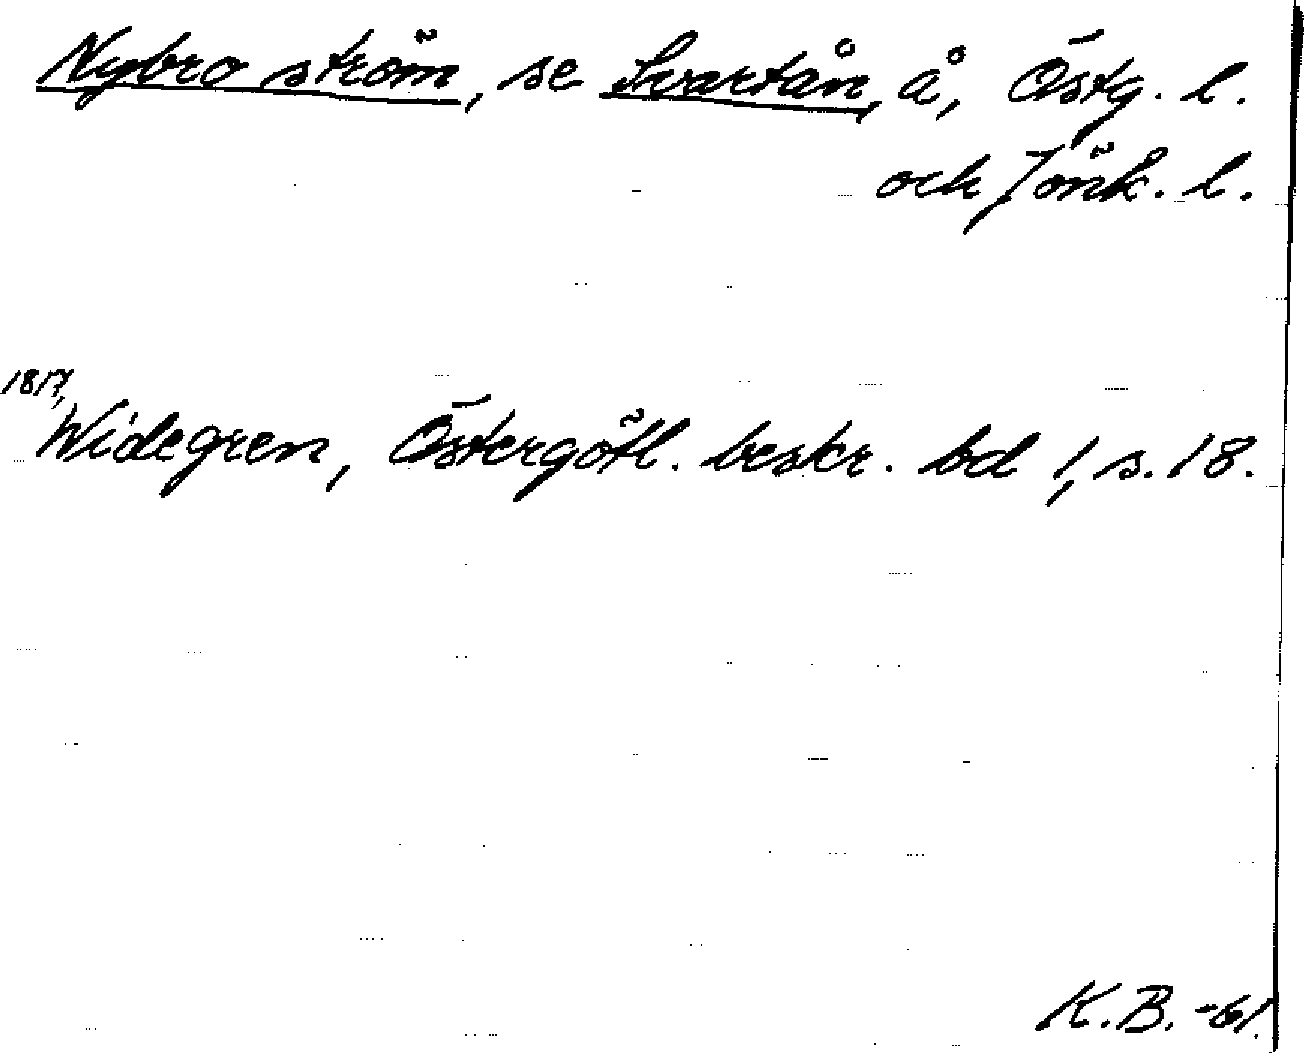 Nybro ström, se Svartån, å, Östg. l.
och Jönk. l.
1817,
Widegren, Östergötl. beskr. bd 1, s. 18.
K.B. -61.